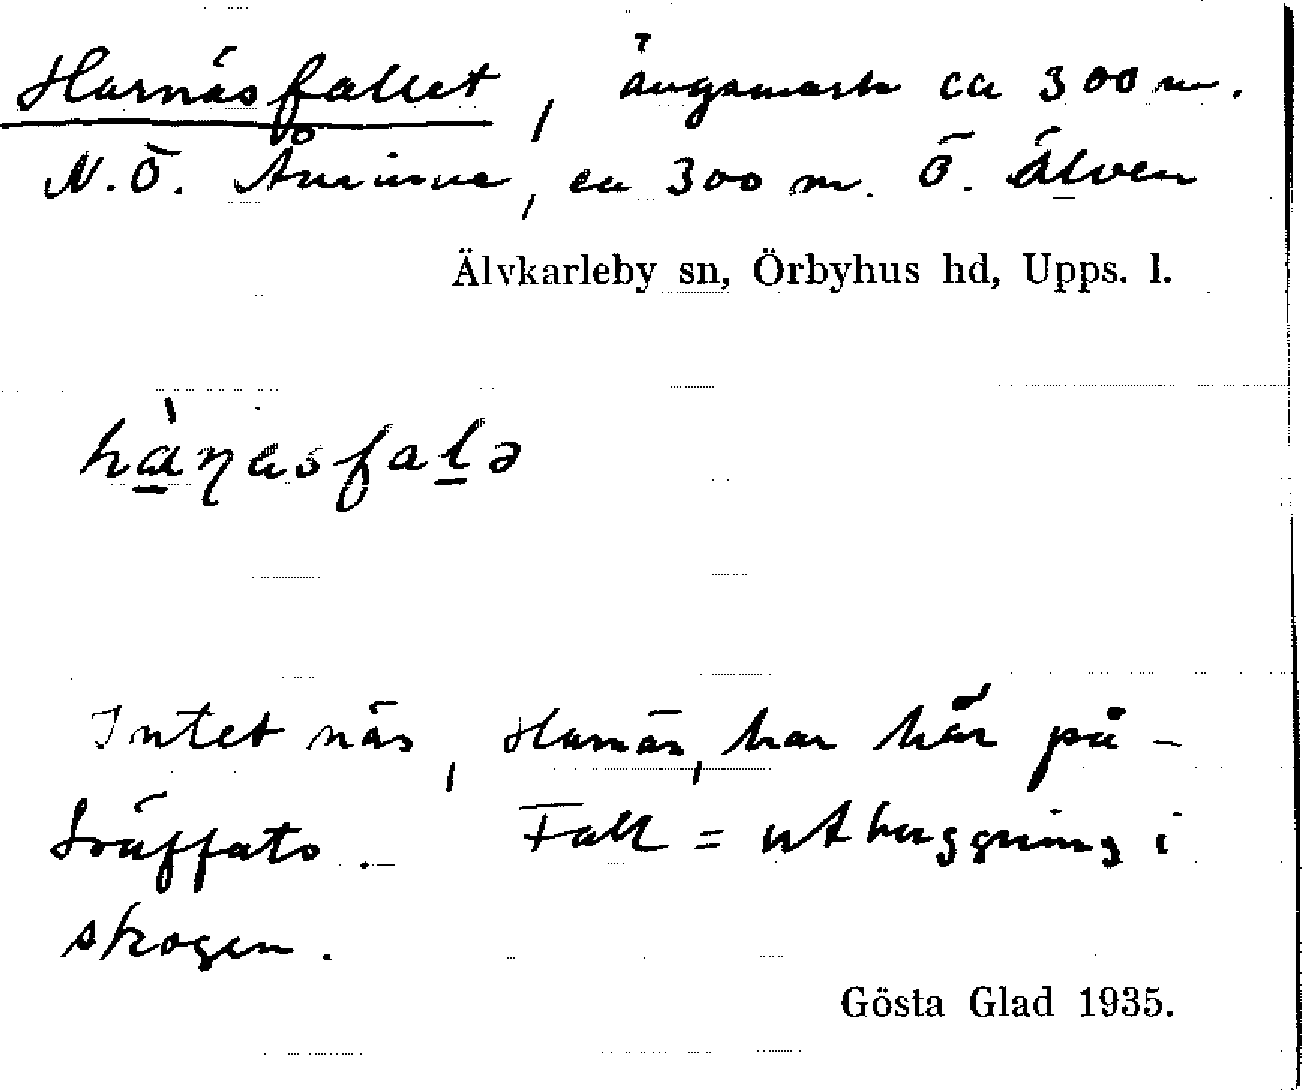 Harnäsfallet, ängsmark ca 300 m.
N.Ö. Årarna, ca 300 m. Ö. Älven
Älvkarleby sn, Örbyhus hd, Upps. l.
hàɳasfalə
Intet näs, Harnäs, har här på-
träffats. – Fall = uthuggning i
skogen.
Gösta Glad 1935.